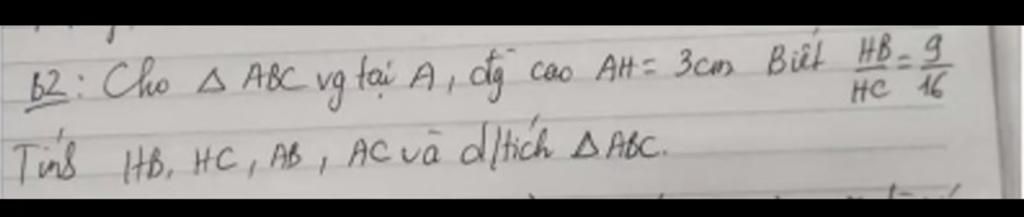 B2: Cho Δ ABC vg tại A, đg cao AH = 3cm Biết HB/HC = 9/16
Tính HB, HC, AB, AC và d/tích Δ ABC.